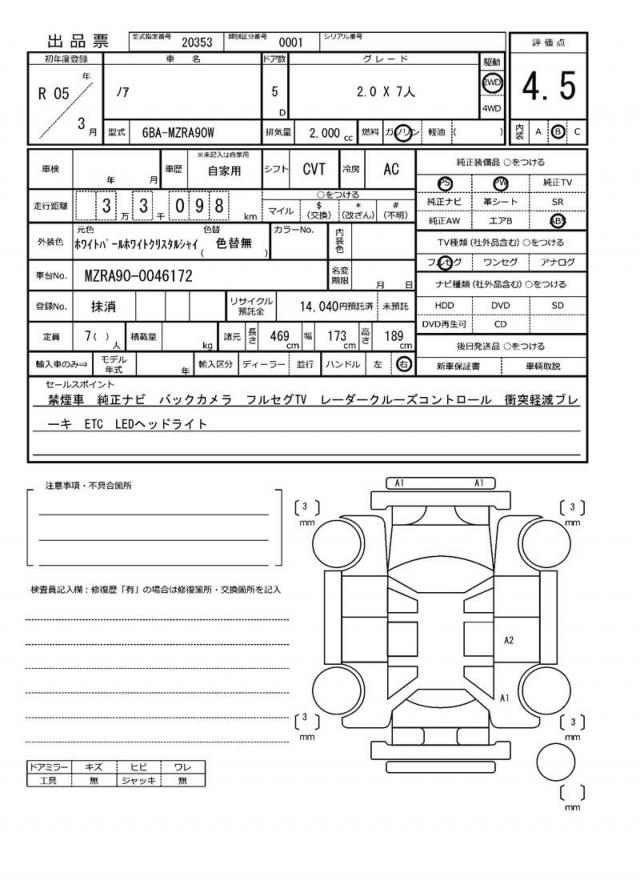 出品票 型式指定番号 20353 類別区分番号 0001 シリアル番号
評価点
初年度登録 車名 ドア数 グレード 駆動
R 05 年 ノア 5 D 2.0 X 7人 2WD 4.5
3 月 4WD
型式 6BA-MZRA90W 排気量 2,000 cc 燃料 ガソリン 軽油 ( ) 内装 A B C
車検 年 月 車歴 ※未記入は自家用 自家用 シフト CVT 冷房 AC 純正装備品 ○をつける
PS PW 純正TV
走行距離 3 万 3 千 0 9 8 km ○をつける
マイル $ (交換) * (改ざん) # (不明)
純正ナビ 革シート SR
純正AW エアB ABS
外装色 元色 ホワイトパールホワイトクリスタルシャイ 色替 ( 色替無 ) カラーNo. 内装色
TV種類(社外品含む) ○をつける
フルセグ ワンセグ アナログ
車台No. MZRA90-0046172 名変期限 月 日
ナビ種類(社外品含む) ○をつける
登録No. 抹消 リサイクル預託金 14,040円預託済 未預託
HDD DVD SD
DVD再生可 CD
定員 7( ) 人 積載量 kg 諸元 長さ 469 cm 幅 173 cm 高さ 189 cm
後日発送品 ○をつける
輸入車のみ⇒ モデル年式 年 輸入区分 ディーラー 並行 ハンドル 左 右
新車保証書 車輌取説
セールスポイント
禁煙車 純正ナビ バックカメラ フルセグTV レーダークルーズコントロール 衝突軽減ブレ
ーキ ETC LEDヘッドライト
注意事項・不具合箇所
検査員記入欄：修復歴「有」の場合は修復箇所・交換箇所を記入
A1 A1
[ 3 ] mm [ 3 ] mm
A2
A1
[ 3 ] mm [ 3 ] mm
[ ] mm
ドアミラー キズ ヒビ ワレ
工具 無 ジャッキ 無